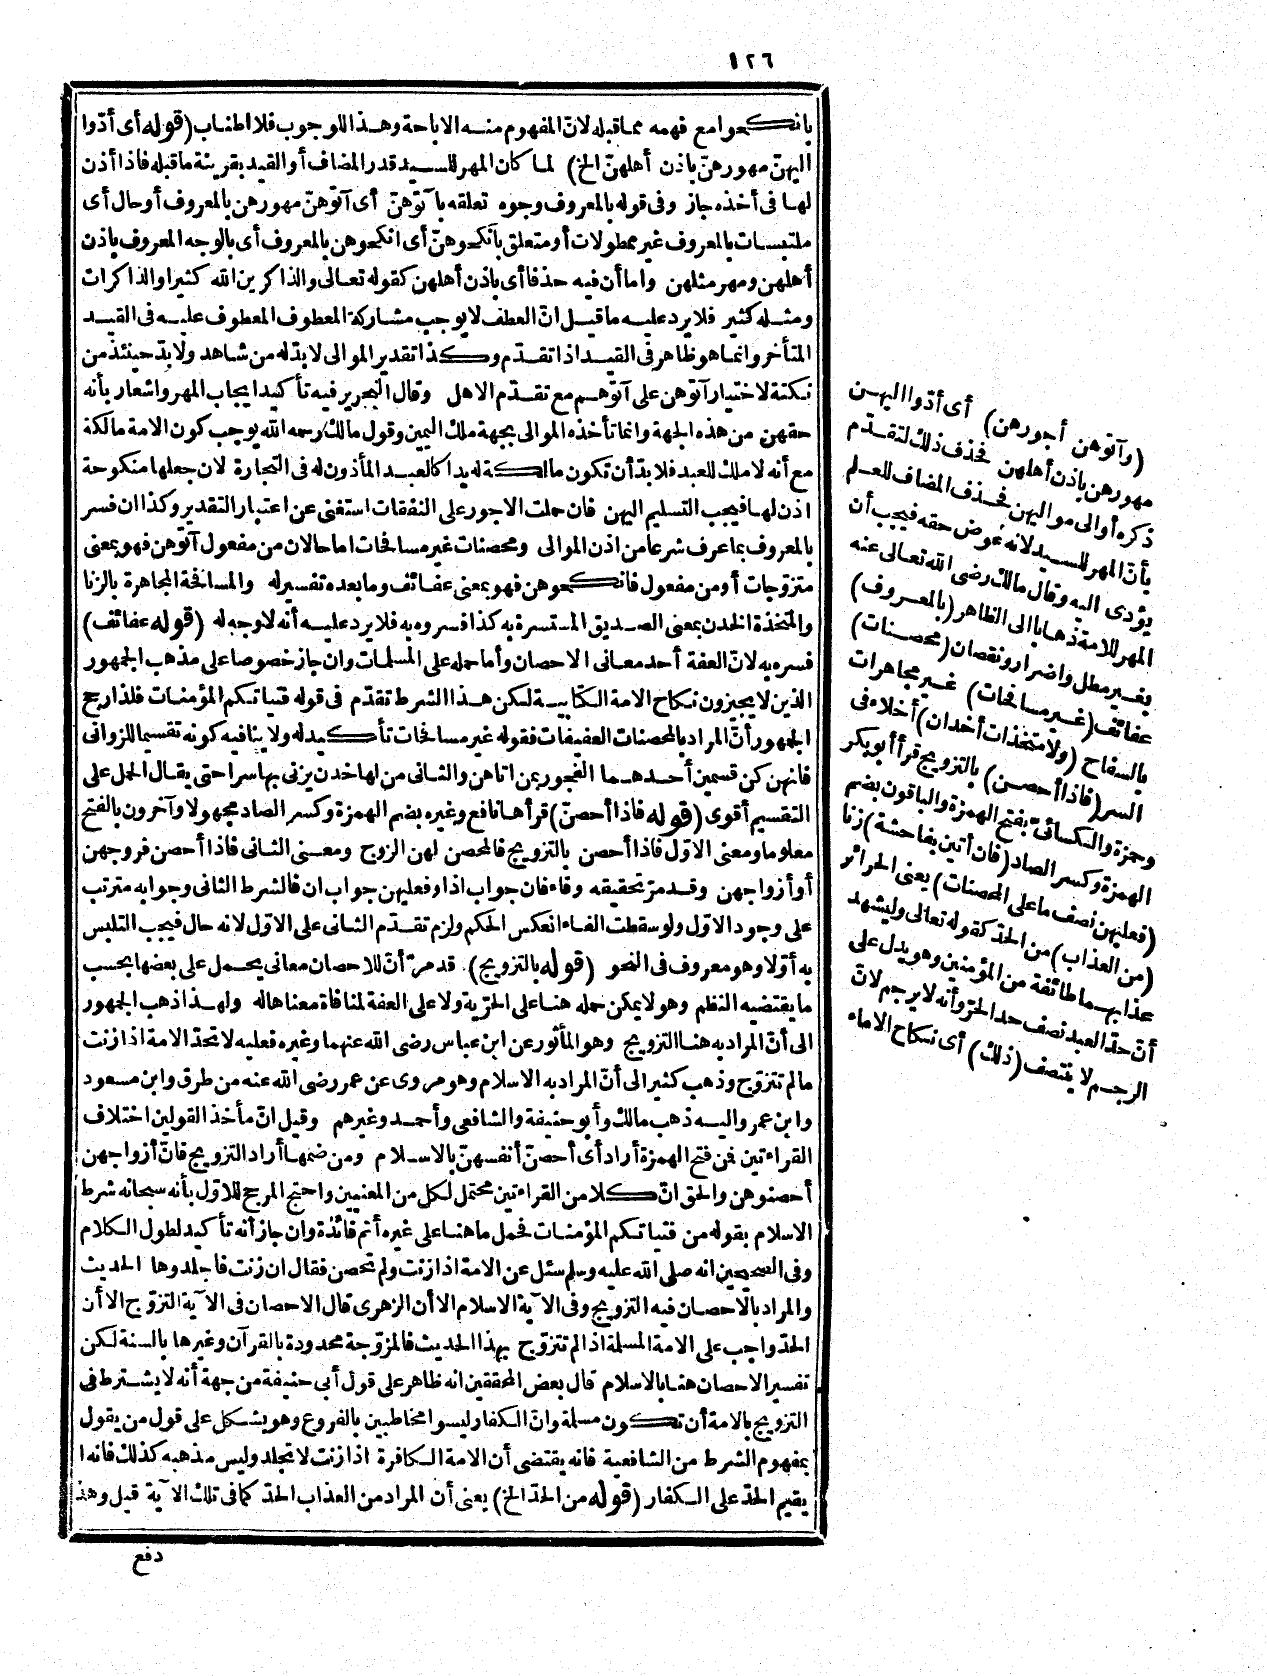 ١٢٦
بانكحوا مع فهمه مما قبله لانّ المفهوم منه الاباحة وهذا للوجوب فلا اطناب (قوله أى أدّوا
اليهنّ مهورهنّ باذن أهلهنّ الخ) لما كان المهر للسيد قدر المضاف أو القيد بقرينة ما قبله فاذا أذن
لها فى أخذه جاز وفى قوله بالمعروف وجوه تعلقه بآتوهنّ أى آتوهنّ مهورهن بالمعروف أو حال أى
ملتبسات بالمعروف غير ممطولات أو متعلق بانكحوهنّ أى انكحوهن بالمعروف أى بالوجه المعروف باذن
أهلهن ومهر مثلهن واما أن فيه حذفا أى باذن أهلهن كقوله تعالى والذاكرين الله كثيرا والذاكرات
ومثله كثير فلا يرد عليه ما قيل انّ العطف لا يوجب مشاركة المعطوف المعطوف عليه فى القيد
المتأخر وانما هو ظاهر فى القيد اذا تقدّم وكذا تقدير الموالى لا بدّ له من شاهد ولا بدّ حينئذ من
نكتة لاختيار آتوهن على آتوهم مع تقدّم الاهل وقال النحرير فيه تأكيد ايجاب المهر واشعار بأنه
حقهن من هذه الجهة وانما تأخذه الموالى بجهة ملك اليمين وقول مالك رحمه الله يوجب كون الامة مالكة
مع أنه لا ملك للعبد فلا بدّ أن تكون مالكة له يدا كالعبد المأذون له فى التجارة لان جعلها منكوحة
اذن لها فيجب التسليم اليهن فان حملت الاجور على النفقات استغنى عن اعتبار التقدير وكذا ان فسر
بالمعروف بما عرف شرعا من اذن الموالى ومحصنات غير مسافحات اما حالان من مفعول آتوهن فهو بمعنى
متزوّجات أو من مفعول فانكحوهن فهو بمعنى عفائف وما بعده تفسير له والمسافحة المجاهرة بالزنا
والمتخذة الخدن بمعنى الصديق المتسترة به كذا فسروه به فلا يرد عليه أنه لا وجه له (قوله عفائف)
فسره به لانّ العفة أحد معانى الاحصان وأما حمله على المسلمات وان جاز خصوصا على مذهب الجمهور
الذين لا يجيزون نكاح الامة الكتابية لكن هذا الشرط تقدّم فى قوله فتياتكم المؤمنات فلذا رجح
الجمهور أنّ المراد بالمحصنات العفيفات فقوله غير مسافحات تأكيد له ولا ينافيه كونه تقسيما للزوانى
فانهن كن قسمين أحدهما الفجور بمن اتاهن والثانى من لها خدن يزنى بها سرا حتى يقال الحمل على
التقسيم أقوى (قوله فاذا أحصنّ) قرأها نافع وغيره بضم الهمزة وكسر الصاد مجهولا وآخرون بالفتح
معلوما ومعنى الاوّل فاذا أحصن بالتزويج فالمحصن لهن الزوج ومعنى الثانى فاذا أحصن فروجهن
أو أزواجهن وقد مرّ تحقيقه وفاء فان جواب اذا وفعليهن جواب ان فالشرط الثانى وجوابه مترتب
على وجود الاوّل ولو سقطت الفاء انعكس الحكم ولزم تقدّم الثانى على الاوّل لانه حال فيجب التلبس
به أوّلا وهو معروف فى النحو (قوله بالتزويج). قد مرّ أنّ للاحصان معانى يحمل على بعضها بحسب
ما يقتضيه النظم وهو لا يمكن حمله هنا على الحرّية ولا على العفة لمنافاة معناها له ولهذا ذهب الجمهور
الى أنّ المراد به هنا التزويج وهو المأثور عن ابن عباس رضى الله عنهما وغيره فعليه لا تحدّ الامة اذا زنت
مالم تتزوّج وذهب كثير الى أنّ المراد به الاسلام وهو مروى عن عمر رضى الله عنه من طرق وابن مسعود
وابن عمر واليه ذهب مالك وأبو حنيفة والشافعى وأحمد وغيرهم وقيل انّ مأخذ القولين اختلاف
القراءتين فمن فتح الهمزة أراد أى أحصنّ أنفسهنّ بالاسلام ومن ضمها أراد التزويج فانّ أزواجهن
أحصنوهن والحق انّ كلا من القراءتين محتمل لكل من المعنيين واحتج المرجح للاوّل بأنه سبحانه شرط
الاسلام بقوله من فتياتكم المؤمنات فحمل ما هنا على غيره أتم فائدة وان جاز أنه تأكيد لطول الكلام
وفى الصحيحين انه صلى الله عليه وسلم سئل عن الامة اذا زنت ولم تحصن فقال ان زنت فاجلدوها الحديث
والمراد بالاحصان فيه التزويج وفى الآية الاسلام الا أن الزهرى قال الاحصان فى الآية التزوّج الا أن
الحدّ واجب على الامة المسلمة اذا لم تتزوّج بهذا الحديث فالمزوّجة محدودة بالقرآن وغيرها بالسنة لكن
تفسير الاحصان هنا بالاسلام قال بعض المحققين انه ظاهر على قول أبى حنيفة من جهة أنه لا يشترط فى
التزويج بالامة أن تكون مسلمة وانّ الكفار ليسوا مخاطبين بالفروع وهو يشكل على قول من يقول
بمفهوم الشرط من الشافعية فانه يقتضى أن الامة الكافرة اذا زنت لا تجلد وليس مذهبه كذلك فانه ا
يقيم الحدّ على الكفار (قوله من الحدّ الخ) يعنى أن المراد من العذاب الحدّ كما فى تلك الآية قيل وهذ
دفع
(وآتوهن أجورهن) أى أدّوا اليهن
مهورهن باذن أهلهن فحذف ذلك لتقدّم
ذكره أو الى مواليهن فحذف المضاف للعلم
بأنّ المهر للسيد لانه عوض حقه فيجب أن
يؤدى اليه وقال مالك رضى الله تعالى عنه
المهر للامة ذهابا الى الظاهر (بالمعروف)
بغير مطل واضرار ونقصان (محصنات)
عفائف (غير مسافحات) غير مجاهرات
بالسفاح (ولا متخذات أخدان) أخلاء فى
السر (فاذا أحصن) بالتزويج قرأ أبو بكر
وحمزة والكسائىّ بفتح الهمزة والباقون بضم
الهمزة وكسر الصاد (فان أتين بفاحشة) زنا
(فعليهن نصف ما على المحصنات) يعنى الحرائر
(من العذاب) من الحدّ كقوله تعالى وليشهد
عذابهما طائفة من المؤمنين وهو يدل على
أنّ حدّ العبد نصف حد الحرّ وأنه لا يرجم لانّ
الرجم لا ينتصف (ذلك) أى نكاح الاماء